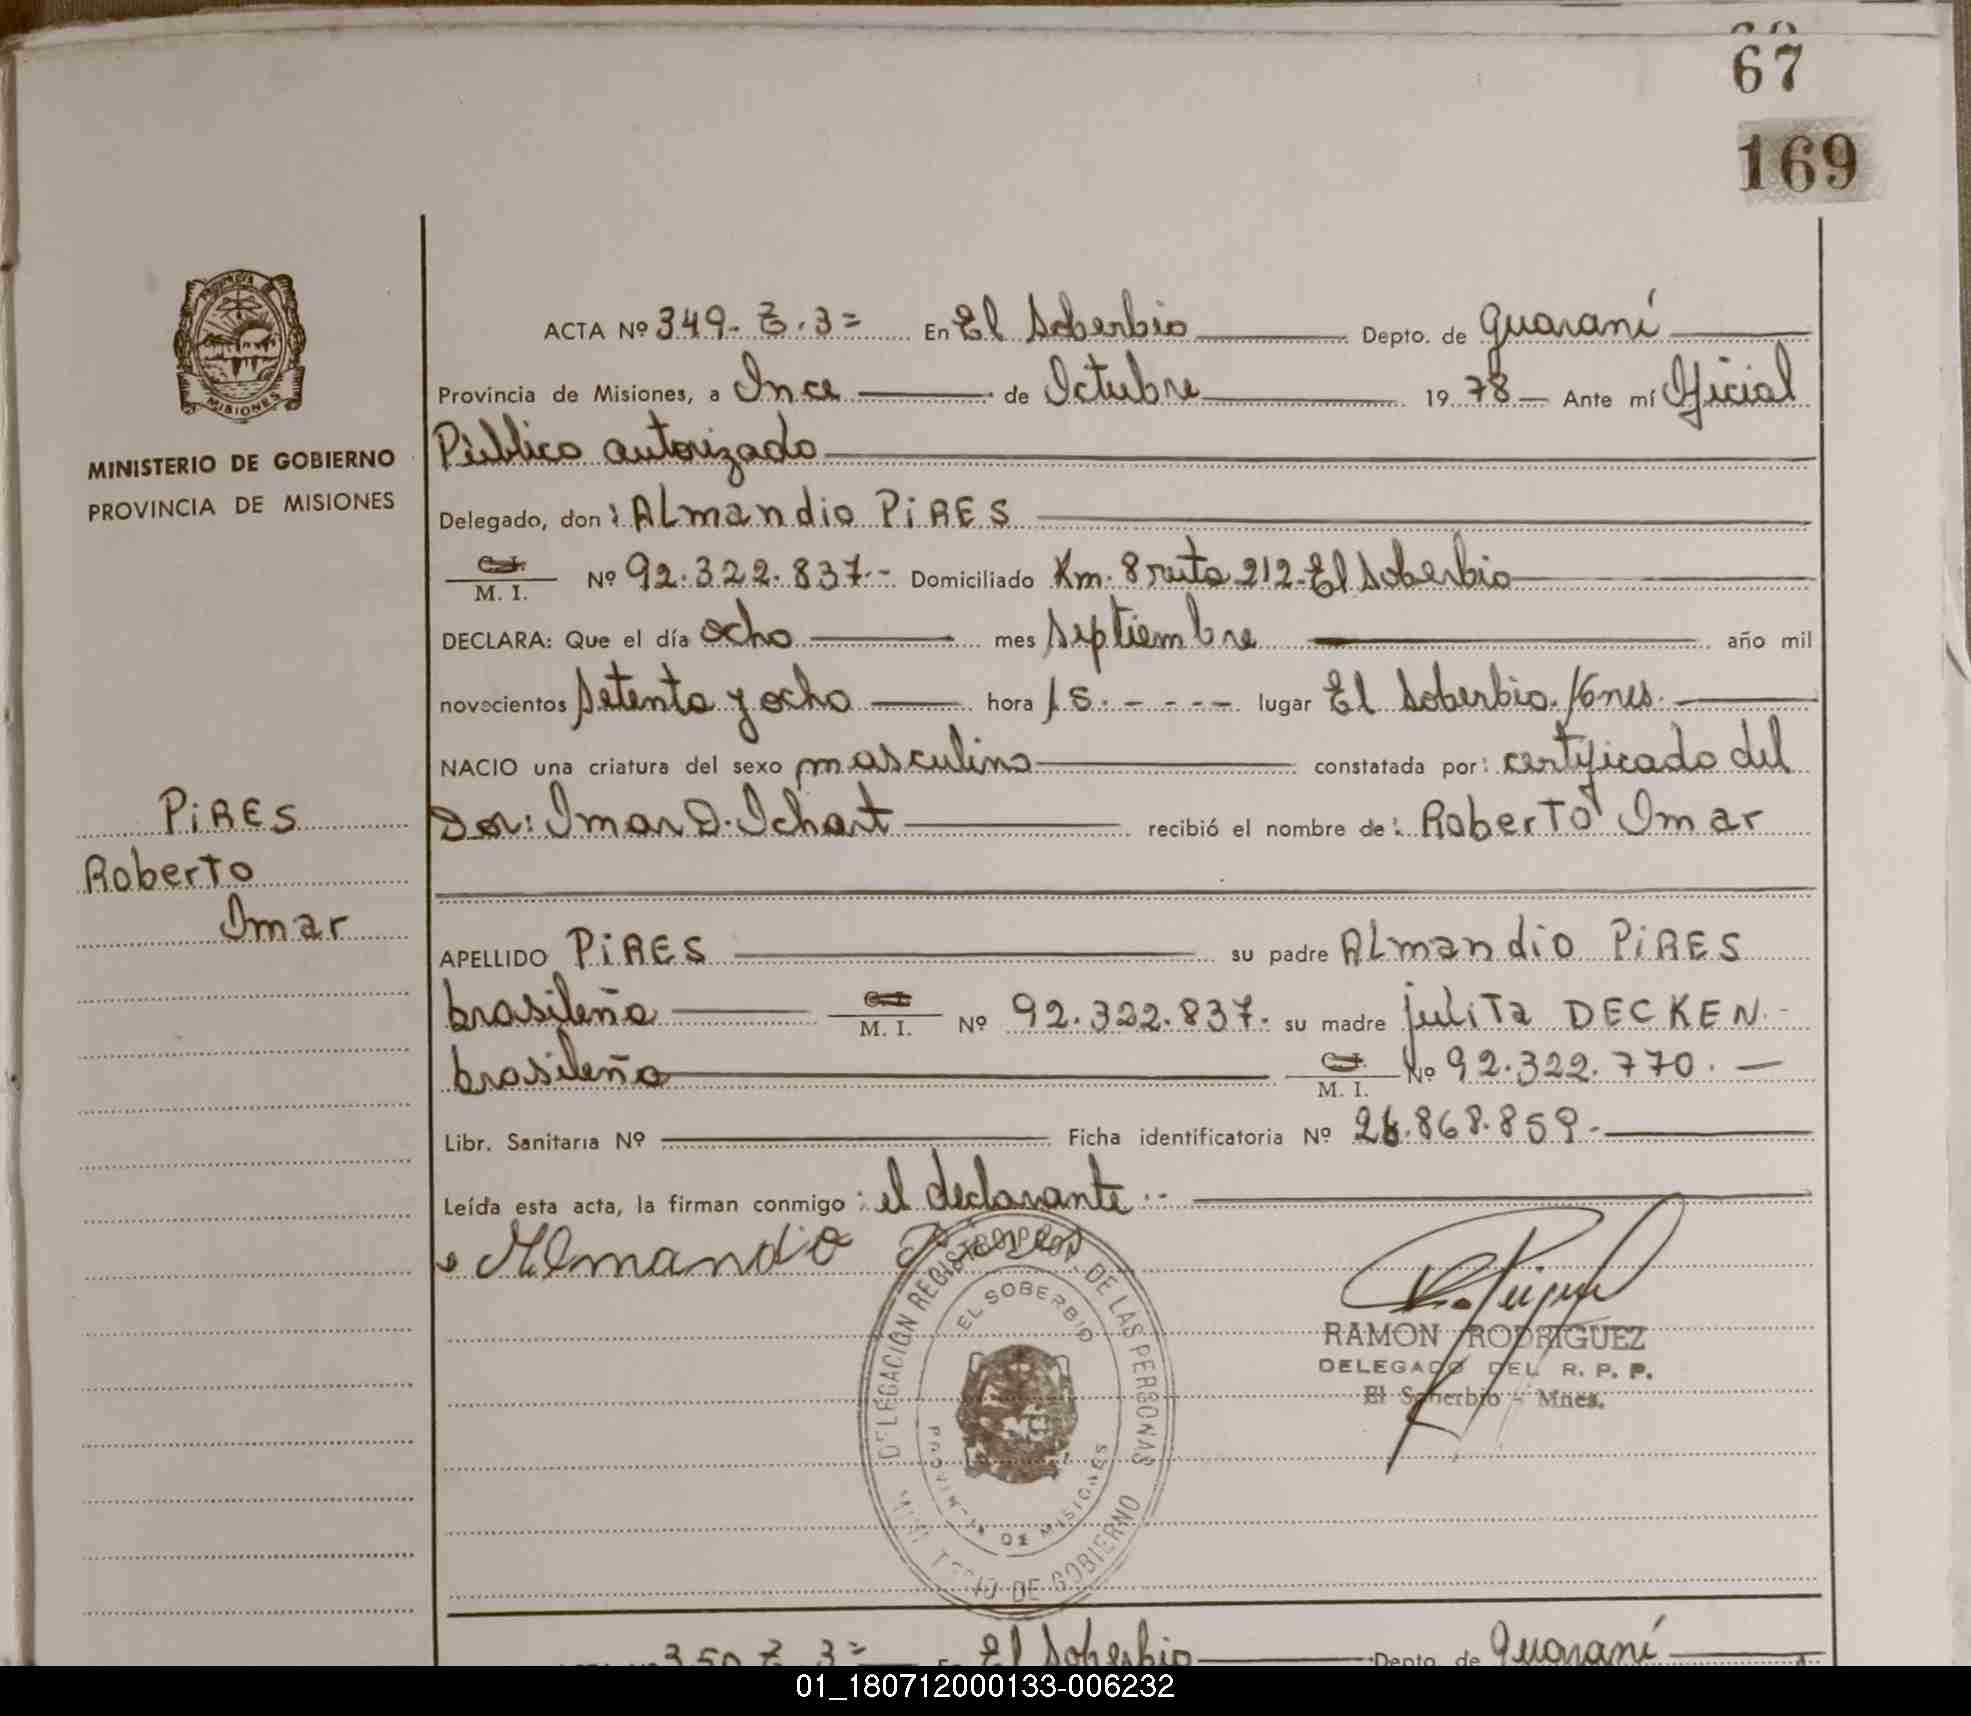 67
169
MISIONES
MINISTERIO DE GOBIERNO
PROVINCIA DE MISIONES
PiRES
Roberto
Omar
ACTA Nº 349. T. 3= En El Soberbio Depto. de Guaraní
Provincia de Misiones, a Once de Octubre 1978 Ante mí Oficial
Público autorizado
Delegado, don: ALmandio PiRES
C.I. M. I. Nº 92.322.837.- Domiciliado Km. 8 ruta 212-El Soberbio
DECLARA: Que el día ocho mes septiembre año mil
novecientos setenta y ocho hora 15.---- lugar El Soberbio.
NACIO una criatura del sexo masculino constatada por: certificado del
Dor: Omar D. Ichart recibió el nombre de: Roberto Omar
APELLIDO PiRES su padre ALmandio PiRES
brasileña C.I. M. I. Nº 92.322.837. su madre juLiTa DECKEN.-
brasileña C.I. M. I. Nº 92.322.770.-
Libr. Sanitaria Nº Ficha identificatoria Nº 26.868.859.-
Leída esta acta, la firman conmigo: el declarante.-
Almandio Pires
DELEGACION REGISTRO PROV. DE LAS PERSONAS
EL SOBERBIO
PROVINCIA DE MISIONES
MINISTERIO DE GOBIERNO
RAMON RODRIGUEZ
DELEGADO DEL R. P. P.
El Soberbio - Mnes.
350 T. 3= En El Soberbio Depto. de Guaraní
01_180712000133-006232